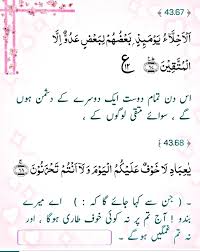 ﴿ 43.67 ﴾
اَلْاَخِلَّآءُ يَوْمَىِٕذٍۭ بَعْضُهُمْ لِبَعْضٍ عَدُوٌّ اِلَّا
الْمُتَّقِيْنَ
اس دن تمام دوست ایک دوسرے کے دشمن ہوں
گے ، سوائے متقی لوگوں کے ،
﴿ 43.68 ﴾
يٰعِبَادِ لَا خَوْفٌ عَلَيْكُمُ الْيَوْمَ وَلَآ اَنْتُمْ تَحْزَنُوْنَ
۔ ( جن سے کہا جائے گا کہ : ) اے میرے
بندو ! آج تم پر نہ کوئی خوف طاری ہوگا ، اور
نہ تم غمگین ہوگے ۔